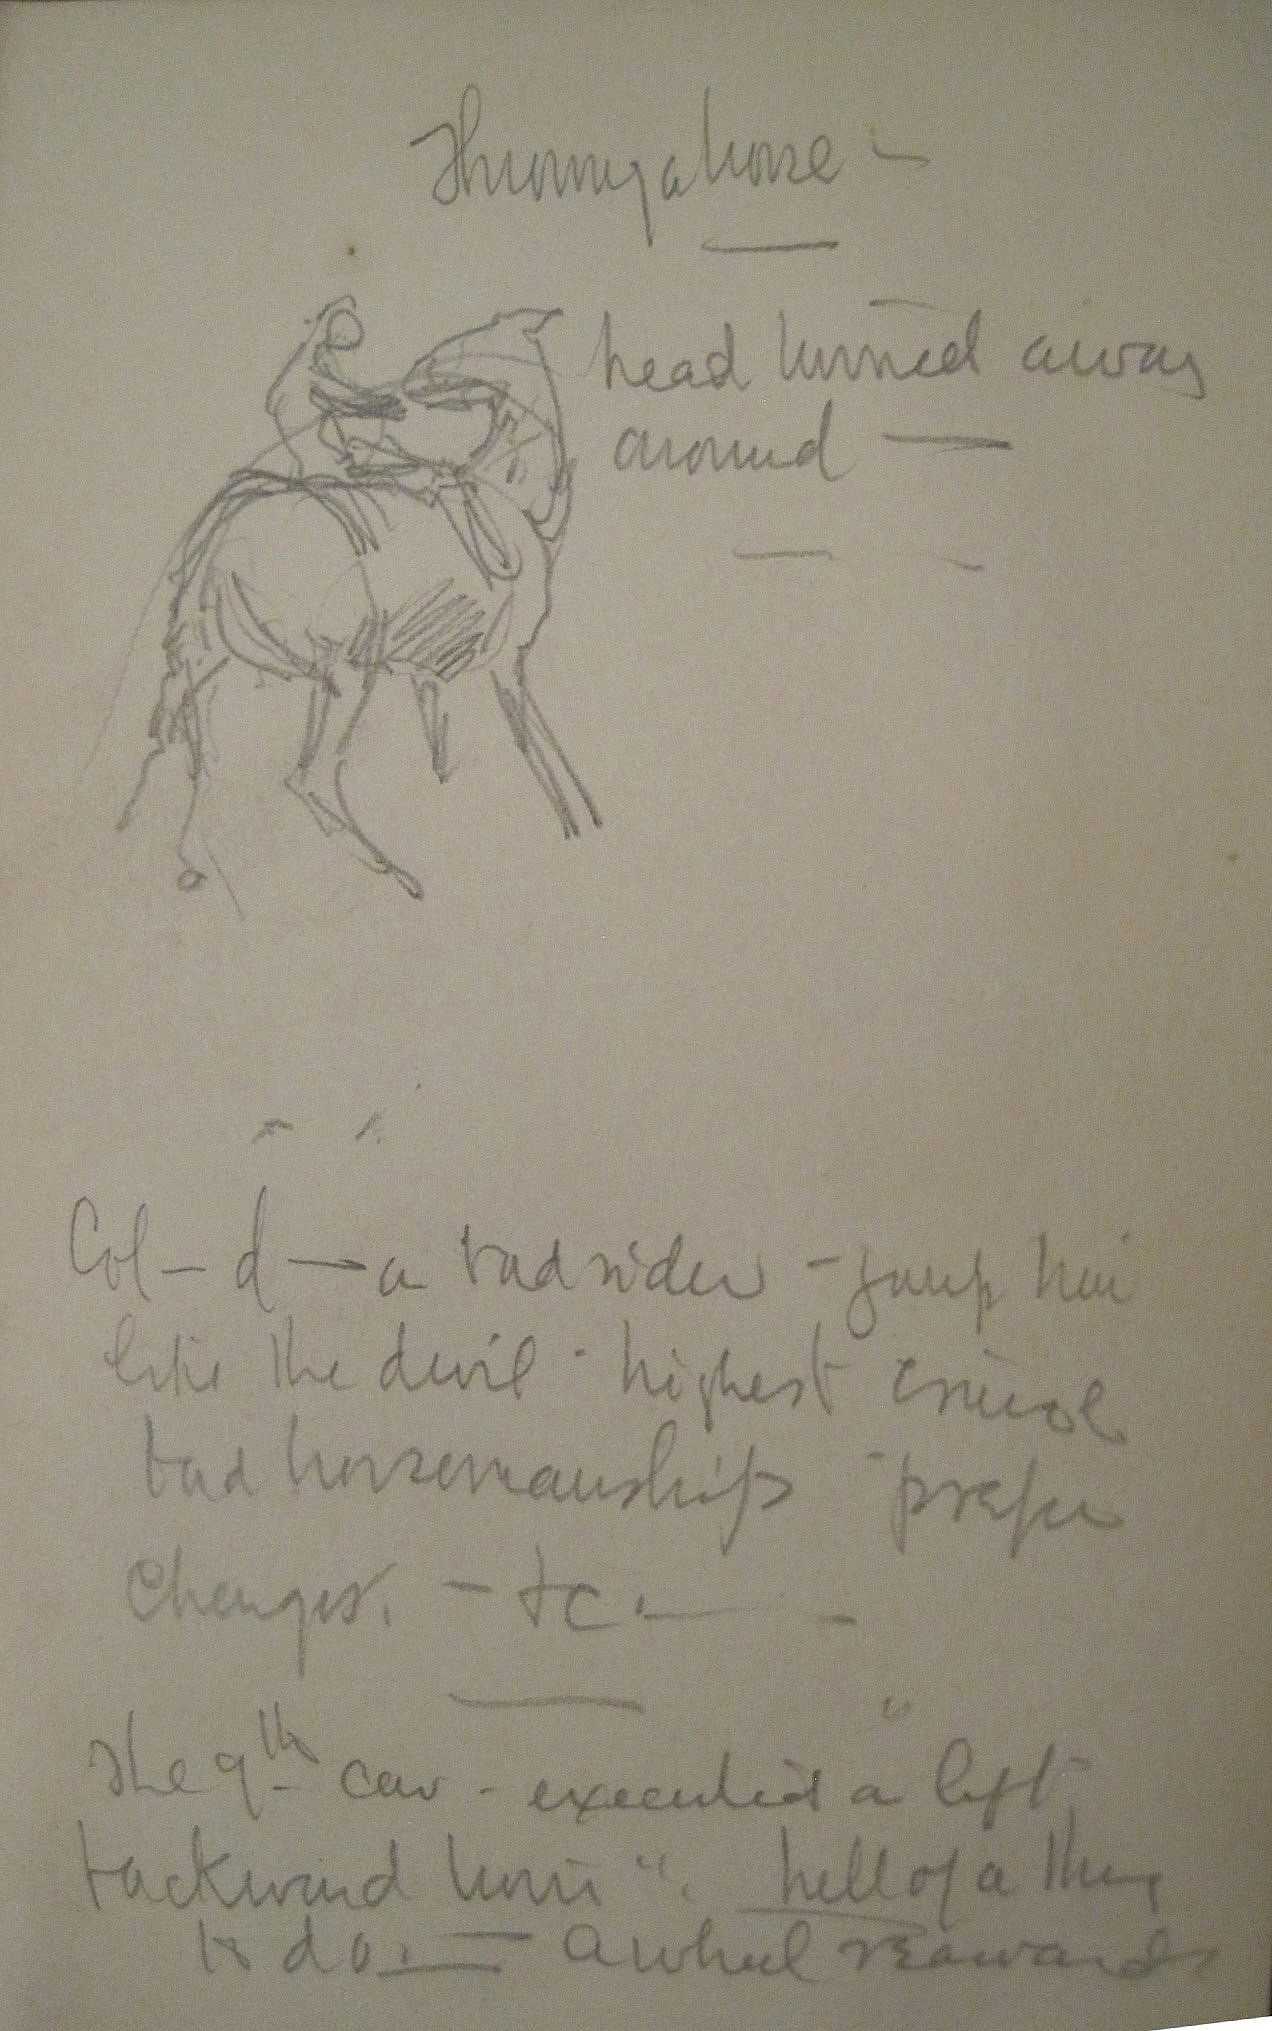 Throwing a horse —
head turned away
around —
Col — d — a bad rider — jump him
like the devil - highest
bad horsemanship -
Changes. — &c. —
The 9th cav - executed a "left
backward turn". hell of a thing
to do. — a wheel rearward